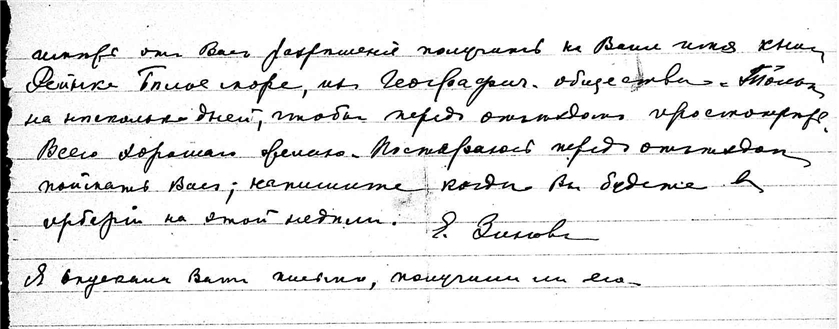 имѣть отъ Васъ разрѣшеніе получить на Ваше имя книг
Рейнке Бѣлое море, изъ Географич. общества. Только
на нѣсколько дней, чтобы передъ отъѣздомъ просмотрѣ
Всего хорошаго желаю. Постараюсь передъ отъѣздом
поискать Васъ; напишите когда Вы будете в
гербаріи на этой недѣли. Е. Зинова
Я опускала Вамъ письмо, получили ли его.